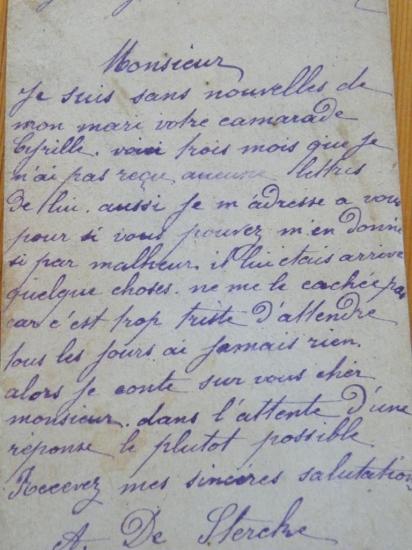 Monsieur
Je suis sans nouvelles de
mon mari votre camarade
Cyrille. voici trois mois que je
n'ai pas reçu aucune lettres
de lui. aussi je m'adresse a vous
pour si vous pouvez m'en donne
si par malheur il lui etais arrive
quelque choses. ne me le cachée pas
car c'est trop triste d'attendre
tous les jours ai jamais rien.
alors je conte sur vous cher
monsieur. dans l'attente d'une
réponse le plutot possible
Recevez mes sincères salutation
A. De Sterche